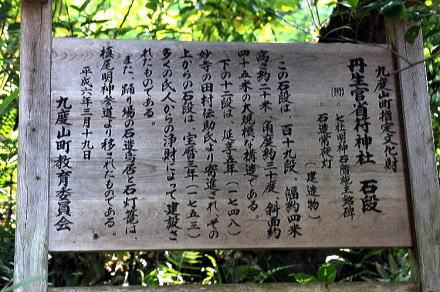 九度山町指定文化財
丹生官省符神社 石段
(附) 七社明神石階壇主銘碑 (建造物)
石造常夜灯
この石段は、百十九段、幅約四米
高約二十米、角度約三十度、斜面約
四十五米の大規模な構造である。
下の十二段は、延享五年(一七四八)
妙寺の田村伝助氏より寄進され、その
上からの石段は、宝暦三年(一七五三)
多くの氏人からの浄財によって建設さ
れたものである。
また、踊り場の石造鳥居と石灯篭は、
槙尾明神参道より移されたものである。
平成六年二月十九日
九度山町教育委員会